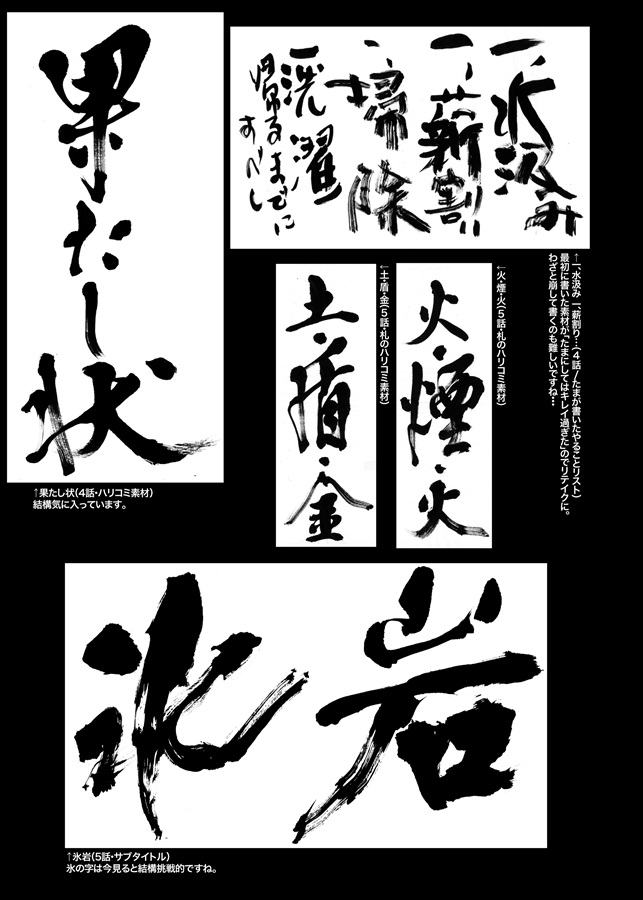 果たし状
一、水汲み
一、薪割り
一、掃除
一、洗濯
帰るまでに
すべし
↑一、水汲み 一、薪割り…(4話/たまが書いたやることリスト)
最初に書いた素材が、「たまにしてはキレイ過ぎた」のでリテイクに。
わざと崩して書くのも難しいですね…
火・煙・火
←火・煙・火(5話・札のハリコミ素材)
土・盾・金
←土・盾・金(5話・札のハリコミ素材)
↑果たし状(4話・ハリコミ素材)
結構気に入っています。
氷岩
↑氷岩(5話・サブタイトル)
氷の字は今見ると結構挑戦的ですね。